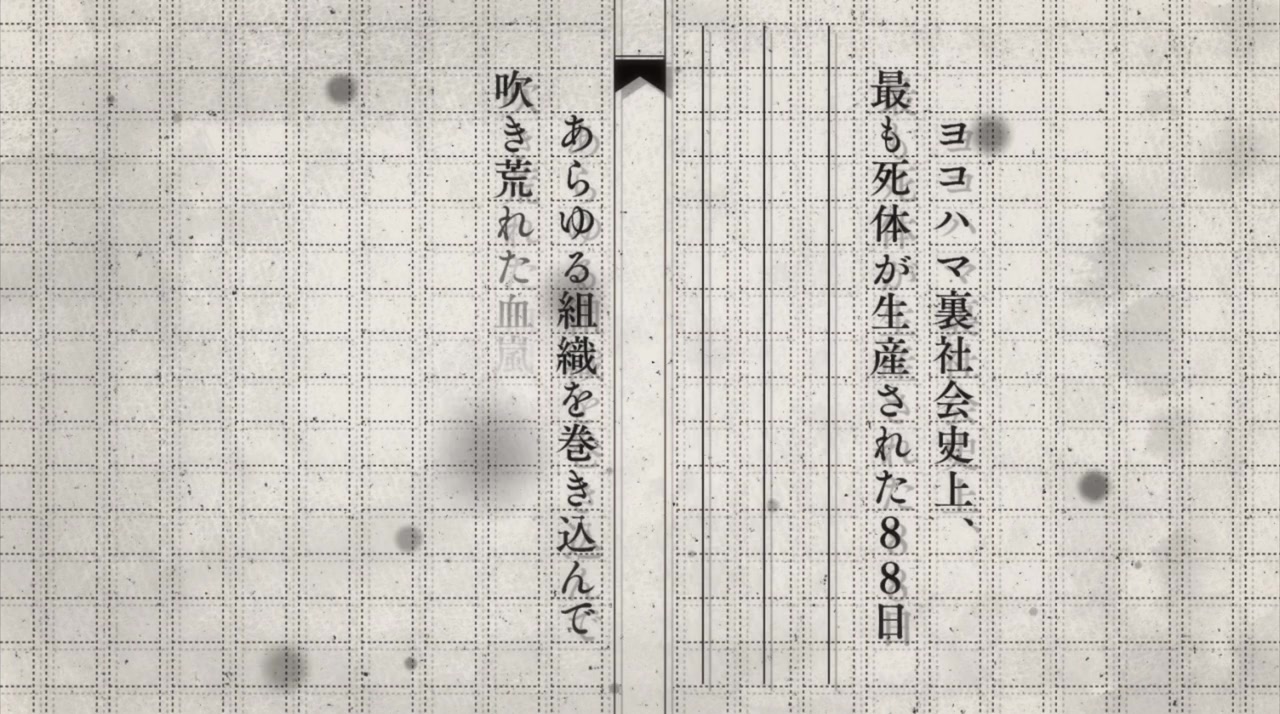 ヨコハマ裏社会史上、
最も死体が生産された88日
あらゆる組織を巻き込んで
吹き荒れた血嵐